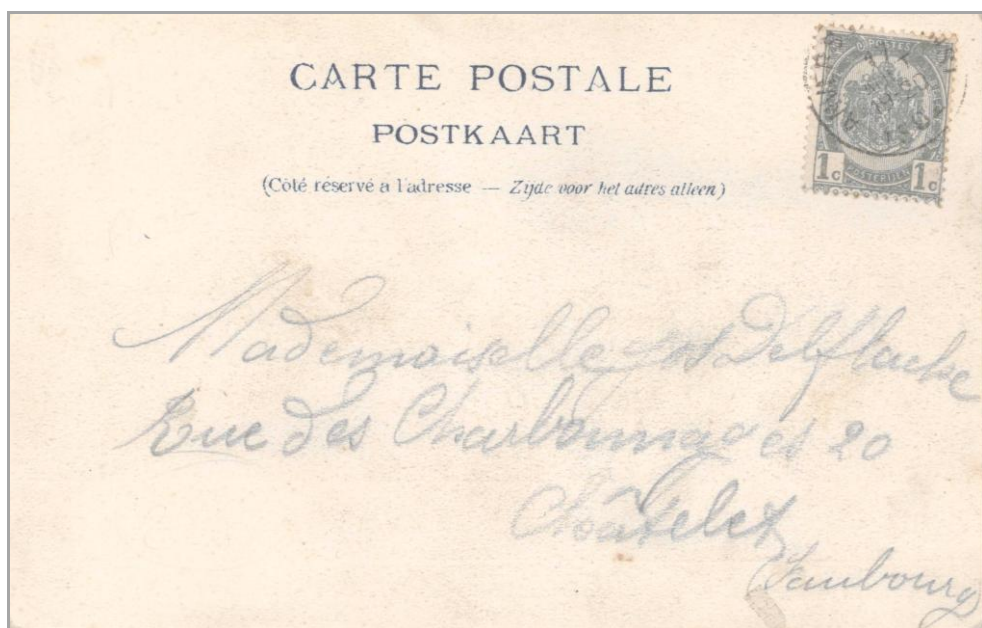 CARTE POSTALE
POSTKAART
(Côté réservé a l'adresse — Zijde voor het adres alleen)
POSTES
POSTERIJEN
1c 1c
Mademoiselle
Rue des Charbonnages 20
Châtelet
(Faubourg)